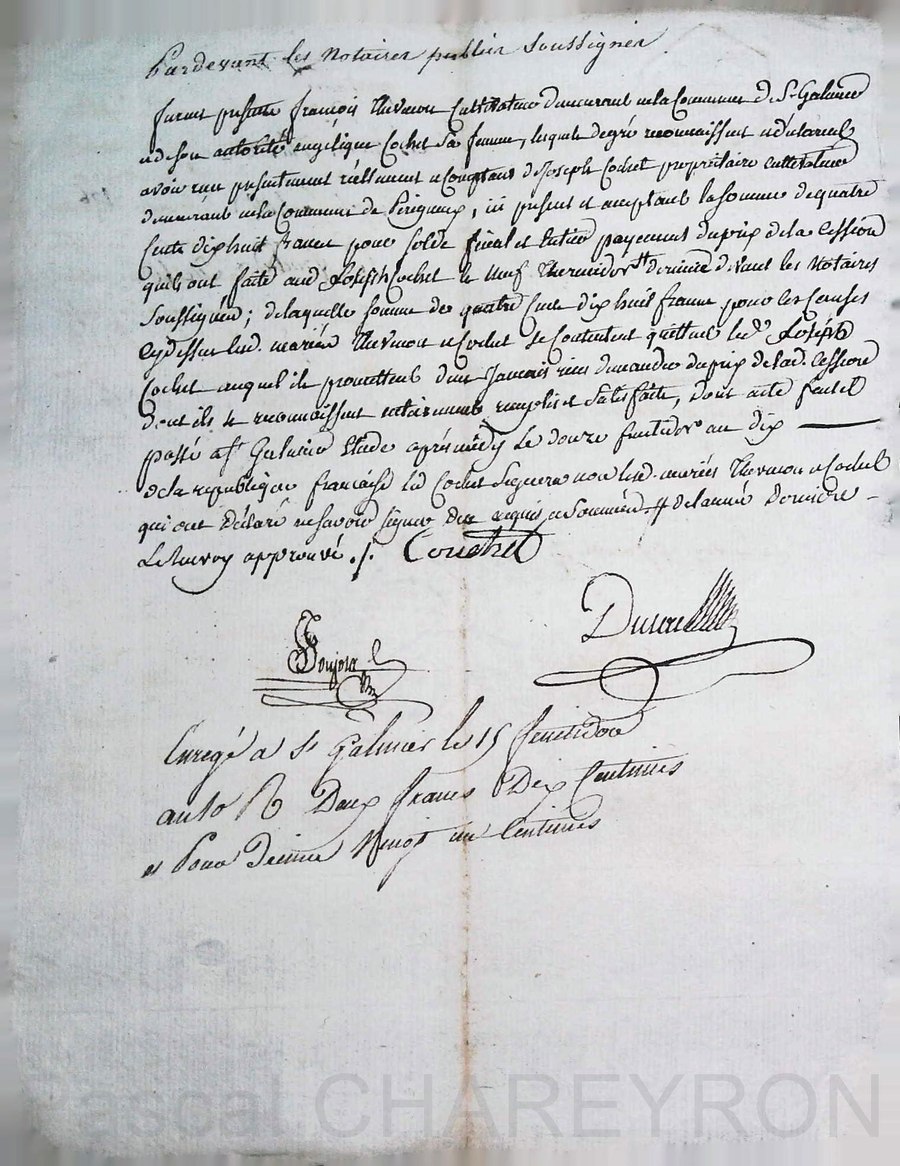 Pardevant les Notaires publics Soussignés
furent présents françois Thevenon Cultivateur demeurant en la Commune de St Galmier
et de son autorité angélique Cochet Sa femme, lesquels de gré reconnaissent et déclarent
avoir reçu présentement réellement et Comptant de Joseph Cochet propriétaire cultivateur
demeurant en la Commune de Périgneux, ici présent et acceptant la Somme de quatre
Cents dix huit francs pour Solde final et Entier payement du prix de la Cession
qu'ils ont faite aud Joseph Cochet le neuf Thermidor # dernier devant les Notaires
Soussignés; de laquelle Somme de quatre Cents dix huit francs pour les Causes
cy dessus lesd. mariés Thevenon et Cochet Se Contentent quittent led. Joseph
Cochet auquel ils promettent d'en Jamais rien demander du prix de lad. Cession
dont ils se reconnaissent entièrement remplis et Satisfaits, dont acte fait et
passé a St Galmier Etude après midy le douze fructidor an dix
de la republique française led Cochet Signera non lesd. mariés Thevenon et Cochet
qui ont déclaré ne savoir signer de ce requis et Sommés # de l'année dernière
Le Renvoy approuvé ./. Couchet
Ponjora
Enregé a St Galmier le 15 fructidor
an 10 R Deux francs Dix Centimes
et Pour Décime Vingt un Centimes
Pascal CHAREYRON